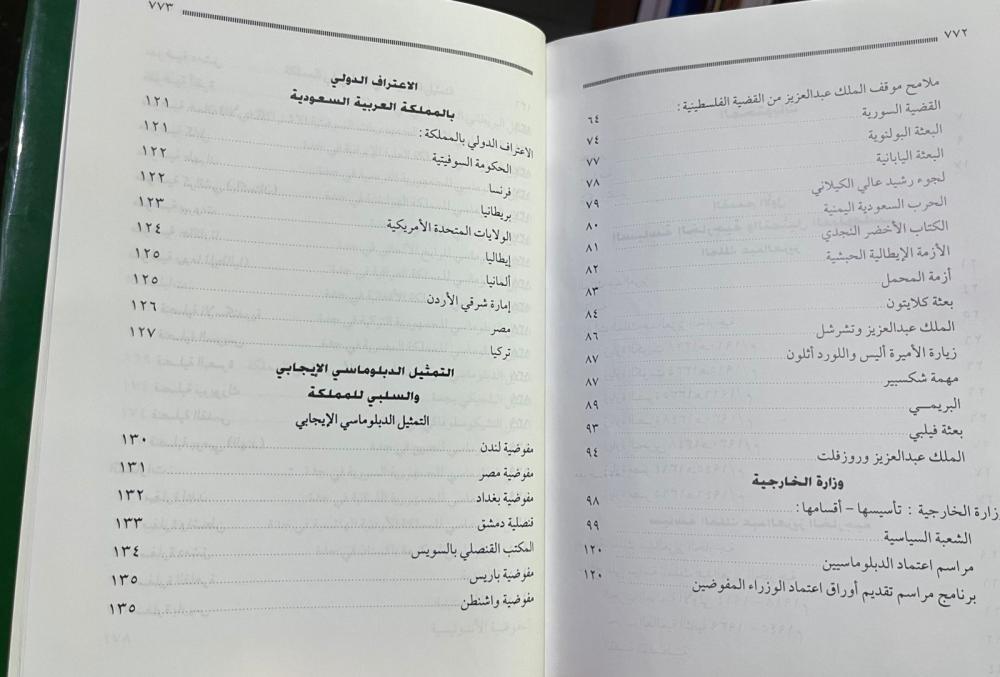 ٧٧٢
ملامح موقف الملك عبدالعزيز من القضية الفلسطينية : ٦٤
القضية السورية ٧٤
البعثة البولنوية ٧٧
البعثة اليابانية ٧٨
لجوء رشيد عالي الكيلاني ٧٩
الحرب السعودية اليمنية ٨٠
الكتاب الأخضر النجدي ٨١
الأزمة الإيطالية الحبشية ٨٢
أزمة المحمل ٨٣
بعثة كلايتون ٨٤
الملك عبدالعزيز وتشرشل ٨٦
زيارة الأميرة أليس واللورد أثلون ٨٧
مهمة شكسبير ٨٧
البريمــي ٨٩
بعثة فيلبي ٩٣
الملك عبدالعزيز وروزفلت ٩٤
وزارة الخارجية
زارة الخارجية : تأسيسها - أقسامها: ٩٨
الشعبة السياسية ٩٩
مراسم اعتماد الدبلوماسيين ١٢٠
برنامج مراسم تقديم أوراق اعتماد الوزراء المفوضين ١٢٠
٧٧٣
الاعتراف الدولي
بالمملكة العربية السعودية
الاعتراف الدولي بالمملكة : ١٢١
الحكومة السوفيتية ١٢١
فرنسا ١٢٢
بريطانيا ١٢٢
الولايات المتحدة الأمريكية ١٢٣
إيطاليا ١٢٤
ألمانيا ١٢٥
إمارة شرقي الأردن ١٢٥
مصر ١٢٦
تركيا ١٢٧
التمثيل الدبلوماسي الإيجابي
والسلبي للمملكة
التمثيل الدبلوماسي الإيجابي
مفوضية لندن ١٣٠
مفوضية مصر ١٣١
مفوضية بغداد ١٣٢
قنصلية دمشق ١٣٣
المكتب القنصلي بالسويس ١٣٤
مفوضية باريس ١٣٥
مفوضية واشنطن ١٣٥